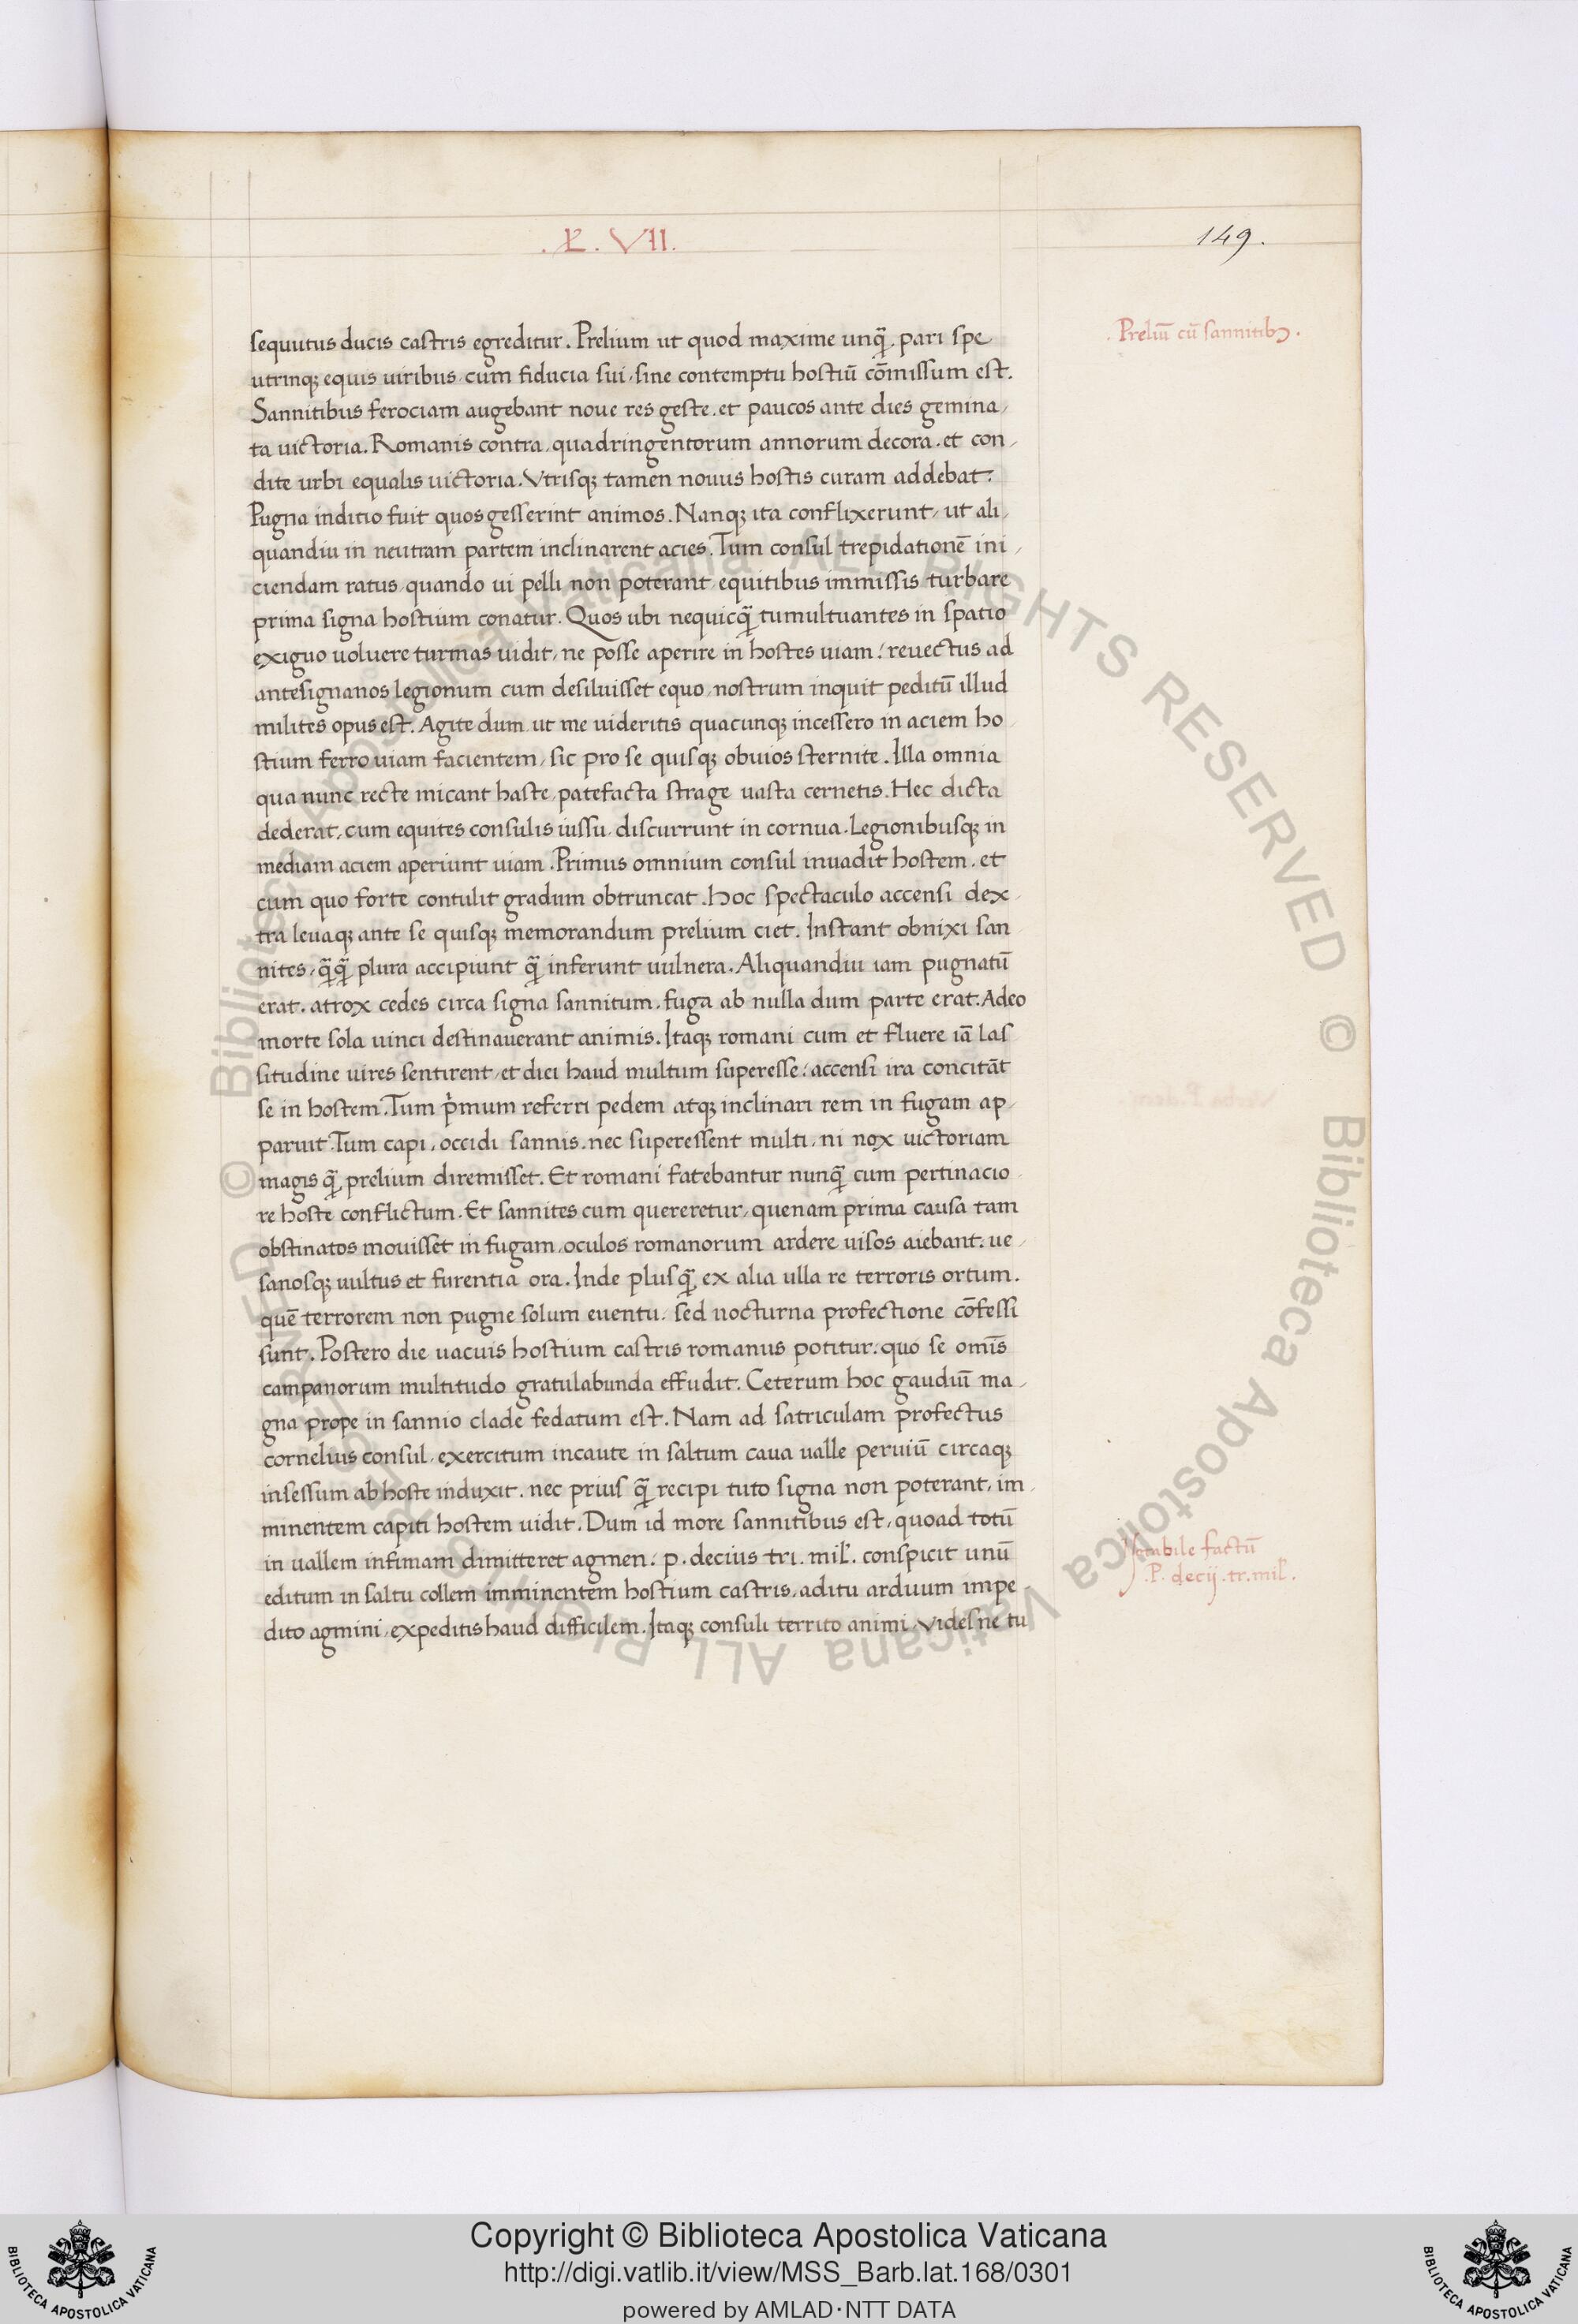 .L. VII.
149.
sequutus ducis castris egreditur. Prelium ut quod maxime unq̄, pari spe
utrinq; equis uiribus, cum fiducia sui, sine contemptu hostiū cōmissum est.
Sannitibus ferociam augebant noue res geste. et paucos ante dies gemina,
ta uictoria. Romanis contra, quadringentorum annorum decora. et con,
dite urbi equalis uictoria. Vtrisq; tamen nouus hostis curam addebat.
Pugna inditio fuit quos gesserint animos. Nanq; ita conflixerunt, ut ali,
quandiu in neutram partem inclinarent acies. Tum consul trepidationē ini,
ciendam ratus, quando ui pelli non poterant, equitibus immissis turbare
prima signa hostium conatur. Quos ubi nequicq̄ tumultuantes in spatio
exiguo uoluere turmas uidit, ne posse aperire in hostes uiam: reuectus ad
antesignanos legionum cum desiluisset equo, nostrum inquit peditū illud
milites opus est. Agite dum ut me uideritis quacunq; incessero in aciem ho,
stium ferro uiam facientem, sic pro se quisq; obuios sternite. Illa omnia
qua nunc recte micant haste, patefacta strage uasta cernetis. Hec dicta
dederat, cum equites consulis iussu, discurrunt in cornua. Legionibusq; in
mediam aciem aperiunt uiam. Primus omnium consul inuadit hostem. et
cum quo forte contulit gradum obtruncat. hoc spectaculo accensi dex,
tra leuaq; ante se quisq; memorandum prelium ciet. Instant obnixi san,
nites, q̄q̄ plura accipiunt q̄ inferunt uulnera. Aliquandiu iam pugnatū
erat. atrox cedes circa signa sannitum. fuga ab nulla dum parte erat. Adeo
morte sola uinci destinauerant animis. Itaq; romani cum et fluere iā las
situdine uires sentirent, et diei haud multum superesse: accensi ira concitāt
se in hostem. Tum p̓mum referri pedem atq; inclinari rem in fugam ap,
paruit. Tum capi, occidi sannis. nec superessent multi, ni nox uictoriam
magis q̄, prelium diremisset. Et romani fatebantur nunq̄ cum pertinacio,
re hoste conflictum. Et sannites cum quereretur, quenam prima causa tam
obstinatos mouisset in fugam, oculos romanorum ardere uisos aiebant. ue,
sanosq; uultus et furentia ora. Inde plusq̄, ex alia ulla re terroris ortum.
quē terrorem non pugne solum euentu, sed nocturna profectione cōfessi
sunt. Postero die uacuis hostium castris romanus potitur. quo se omīs
campanorum multitudo gratulabunda effudit. Ceterum hoc gaudiū ma,
gna prope in sannio clade fedatum est. Nam ad satriculam profectus
cornelius consul, exercitum incaute in saltum caua ualle peruiū circaq;
insessum ab hoste induxit. nec prius q̄ recipi tuto signa non poterant, im,
minentem capiti hostem uidit. Dum id more sannitibus est, quoad totū
in uallem infimam dimitteret agmen: p. decius tri. mil̓. conspicit unū
editum in saltu collem imminentem hostium castris, aditu arduum impe,
dito agmini, expeditis haud difficilem. Itaq; consuli territo animi. Vides ne tu
. Preliū cū sannitibꝫ.
Notabile factū
.P. decij. tr. mil̓.
© Biblioteca Apostolica Vaticana ALL RIGHTS RESERVED © Biblioteca Apostolica Vaticana ALL RIGHTS RESERVED
Copyright © Biblioteca Apostolica Vaticana
http://digi.vatlib.it/view/MSS_Barb.lat.168/0301
powered by AMLAD·NTT DATA
BIBLIOTECA APOSTOLICA VATICANA
BIBLIOTECA APOSTOLICA VATICANA